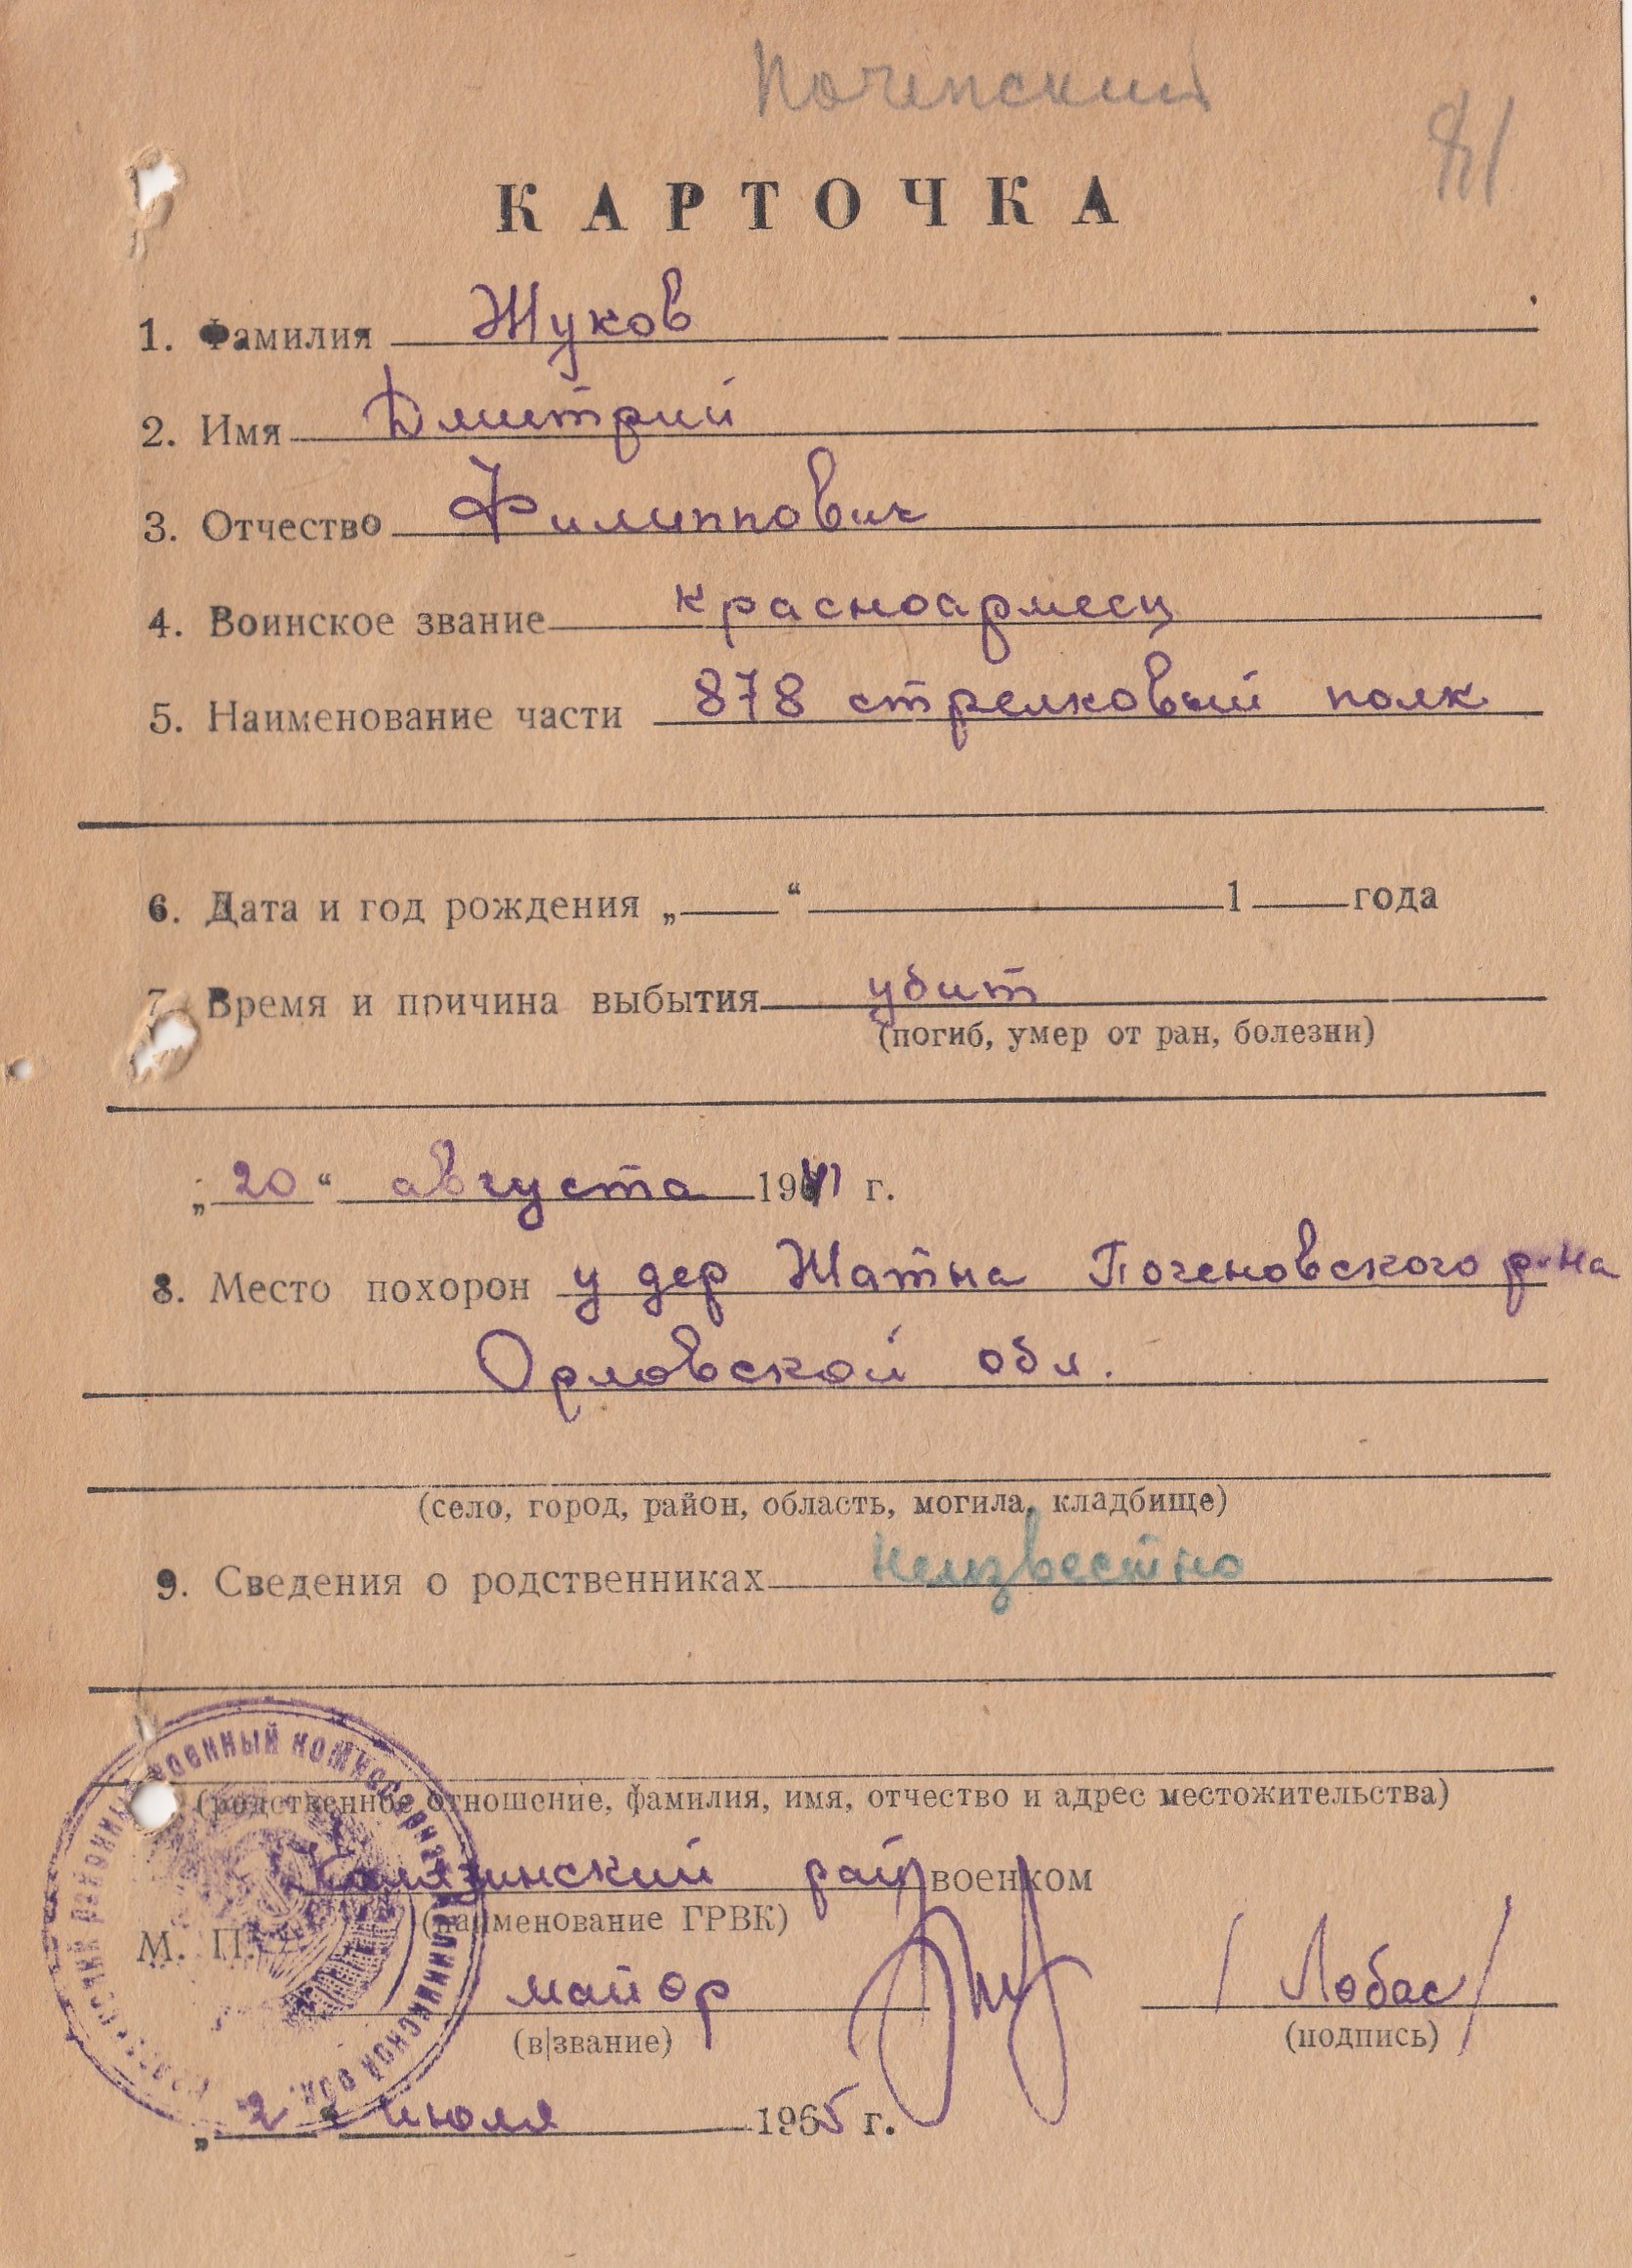 Почепский
81
КАРТОЧКА
1. Фамилия Жуков
2. Имя Дмитрий
3. Отчество Филиппович
4. Воинское звание красноармеец
5. Наименование части 878 стрелковый полк
6. Дата и год рождения „ “ 1 года
7. Время и причина выбытия убит
(погиб, умер от ран, болезни)
„20“ августа 1941 г.
8. Место похорон у дер Жатна Поченовского р-на
Орловской обл.
(село, город, район, область, могила, кладбище)
9. Сведения о родственниках неизвестно
(родственное отношение, фамилия, имя, отчество и адрес местожительства)
Калязинский рай военком
(наименование ГРВК)
М. П.
майор / Лобас /
(в|звание) (подпись)
„2“ июля 1965 г.
районный военный комиссариат Калининской обл.